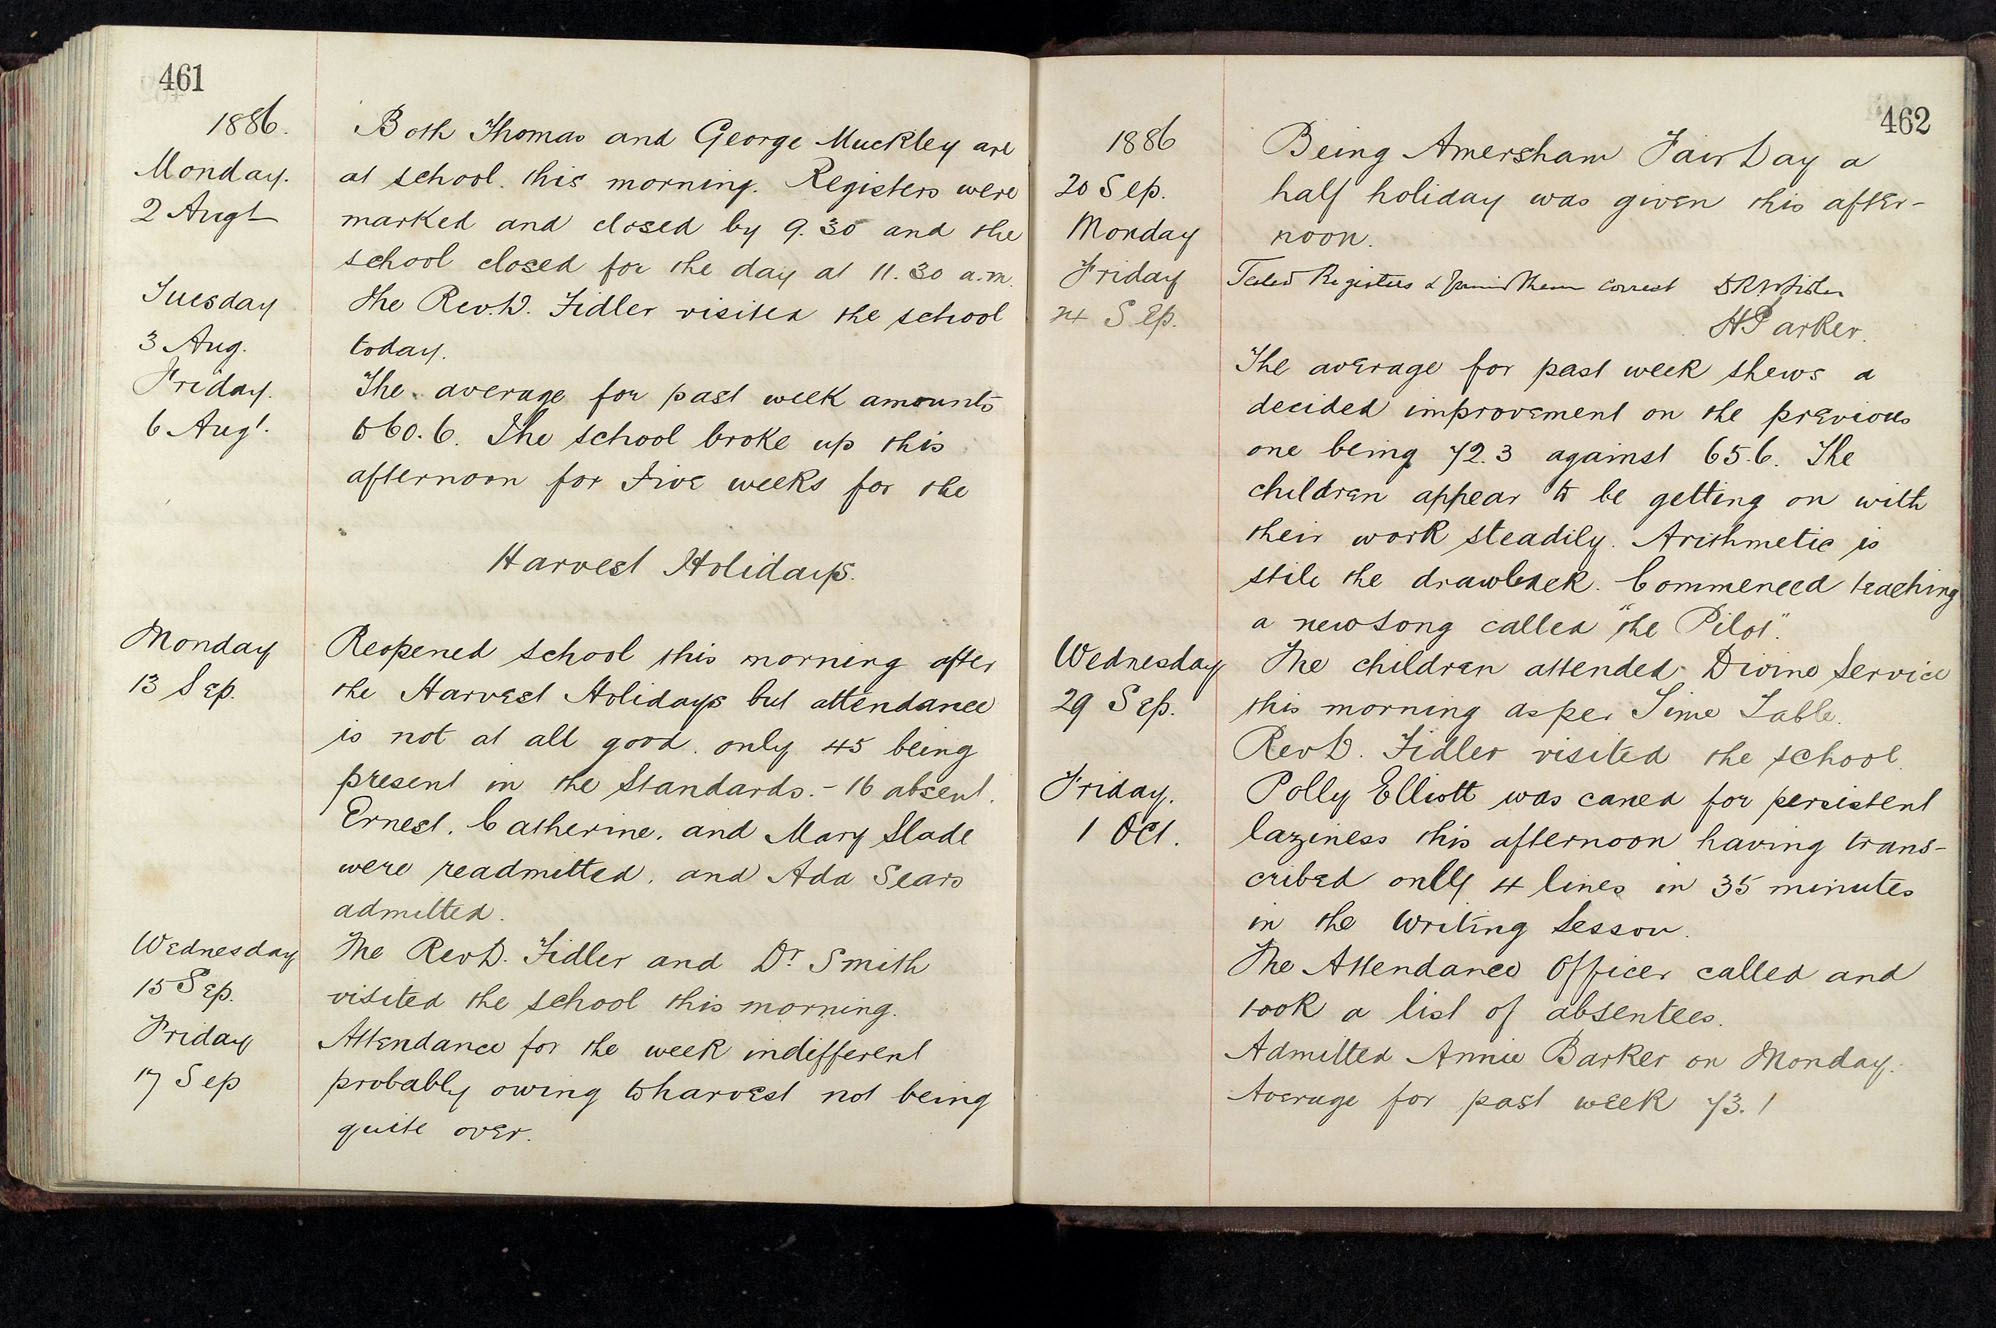 461
1886.
Monday.
2 Augt
Both Thomas and George Muckley are
at school this morning. Registers were
marked and closed by 9.30 and the
school closed for the day at 11.30 a.m.
Tuesday
3 Aug.
The Rev.D. Fidler visited the school
today.
Friday.
6 Augt.
The average for past week amounts
to 60.6. The school broke up this
afternoon for Five weeks for the
Harvest Holidays.
Monday
13 Sep.
Reopened school this morning after
the Harvest Holidays but attendance
is not at all good. only 45 being
present in the Standards. - 16 absent.
Ernest, Catherine, and Mary Slade
were readmitted, and Ada Sears
admitted.
Wednesday
15 Sep.
The RevD. Fidler and Dr Smith
visited the school this morning.
Friday
17 Sep
Attendance for the week indifferent
probably owing to harvest not being
quite over.
462
1886
20 Sep.
Monday
Being Amersham Fair Day a
half holiday was given this after-
noon.
Friday
24 Sep.
Tested Registers & found them correct
H Parker.
The average for past week shews a
decided improvement on the previous
one being 72.3 against 65.6. The
children appear to be getting on with
their work steadily. Arithmetic is
still the drawback. Commenced teaching
a new song called "the Pilot".
Wednesday
29 Sep.
The children attended Divine Service
this morning as per Time Table.
RevD. Fidler visited the school.
Friday.
1 Oct.
Polly Elliott was caned for persistent
laziness this afternoon having trans-
cribed only 4 lines in 35 minutes
in the Writing Lesson.
The Attendance Officer called and
took a list of absentees.
Admitted Annie Barker on Monday.
Average for past week 73.1